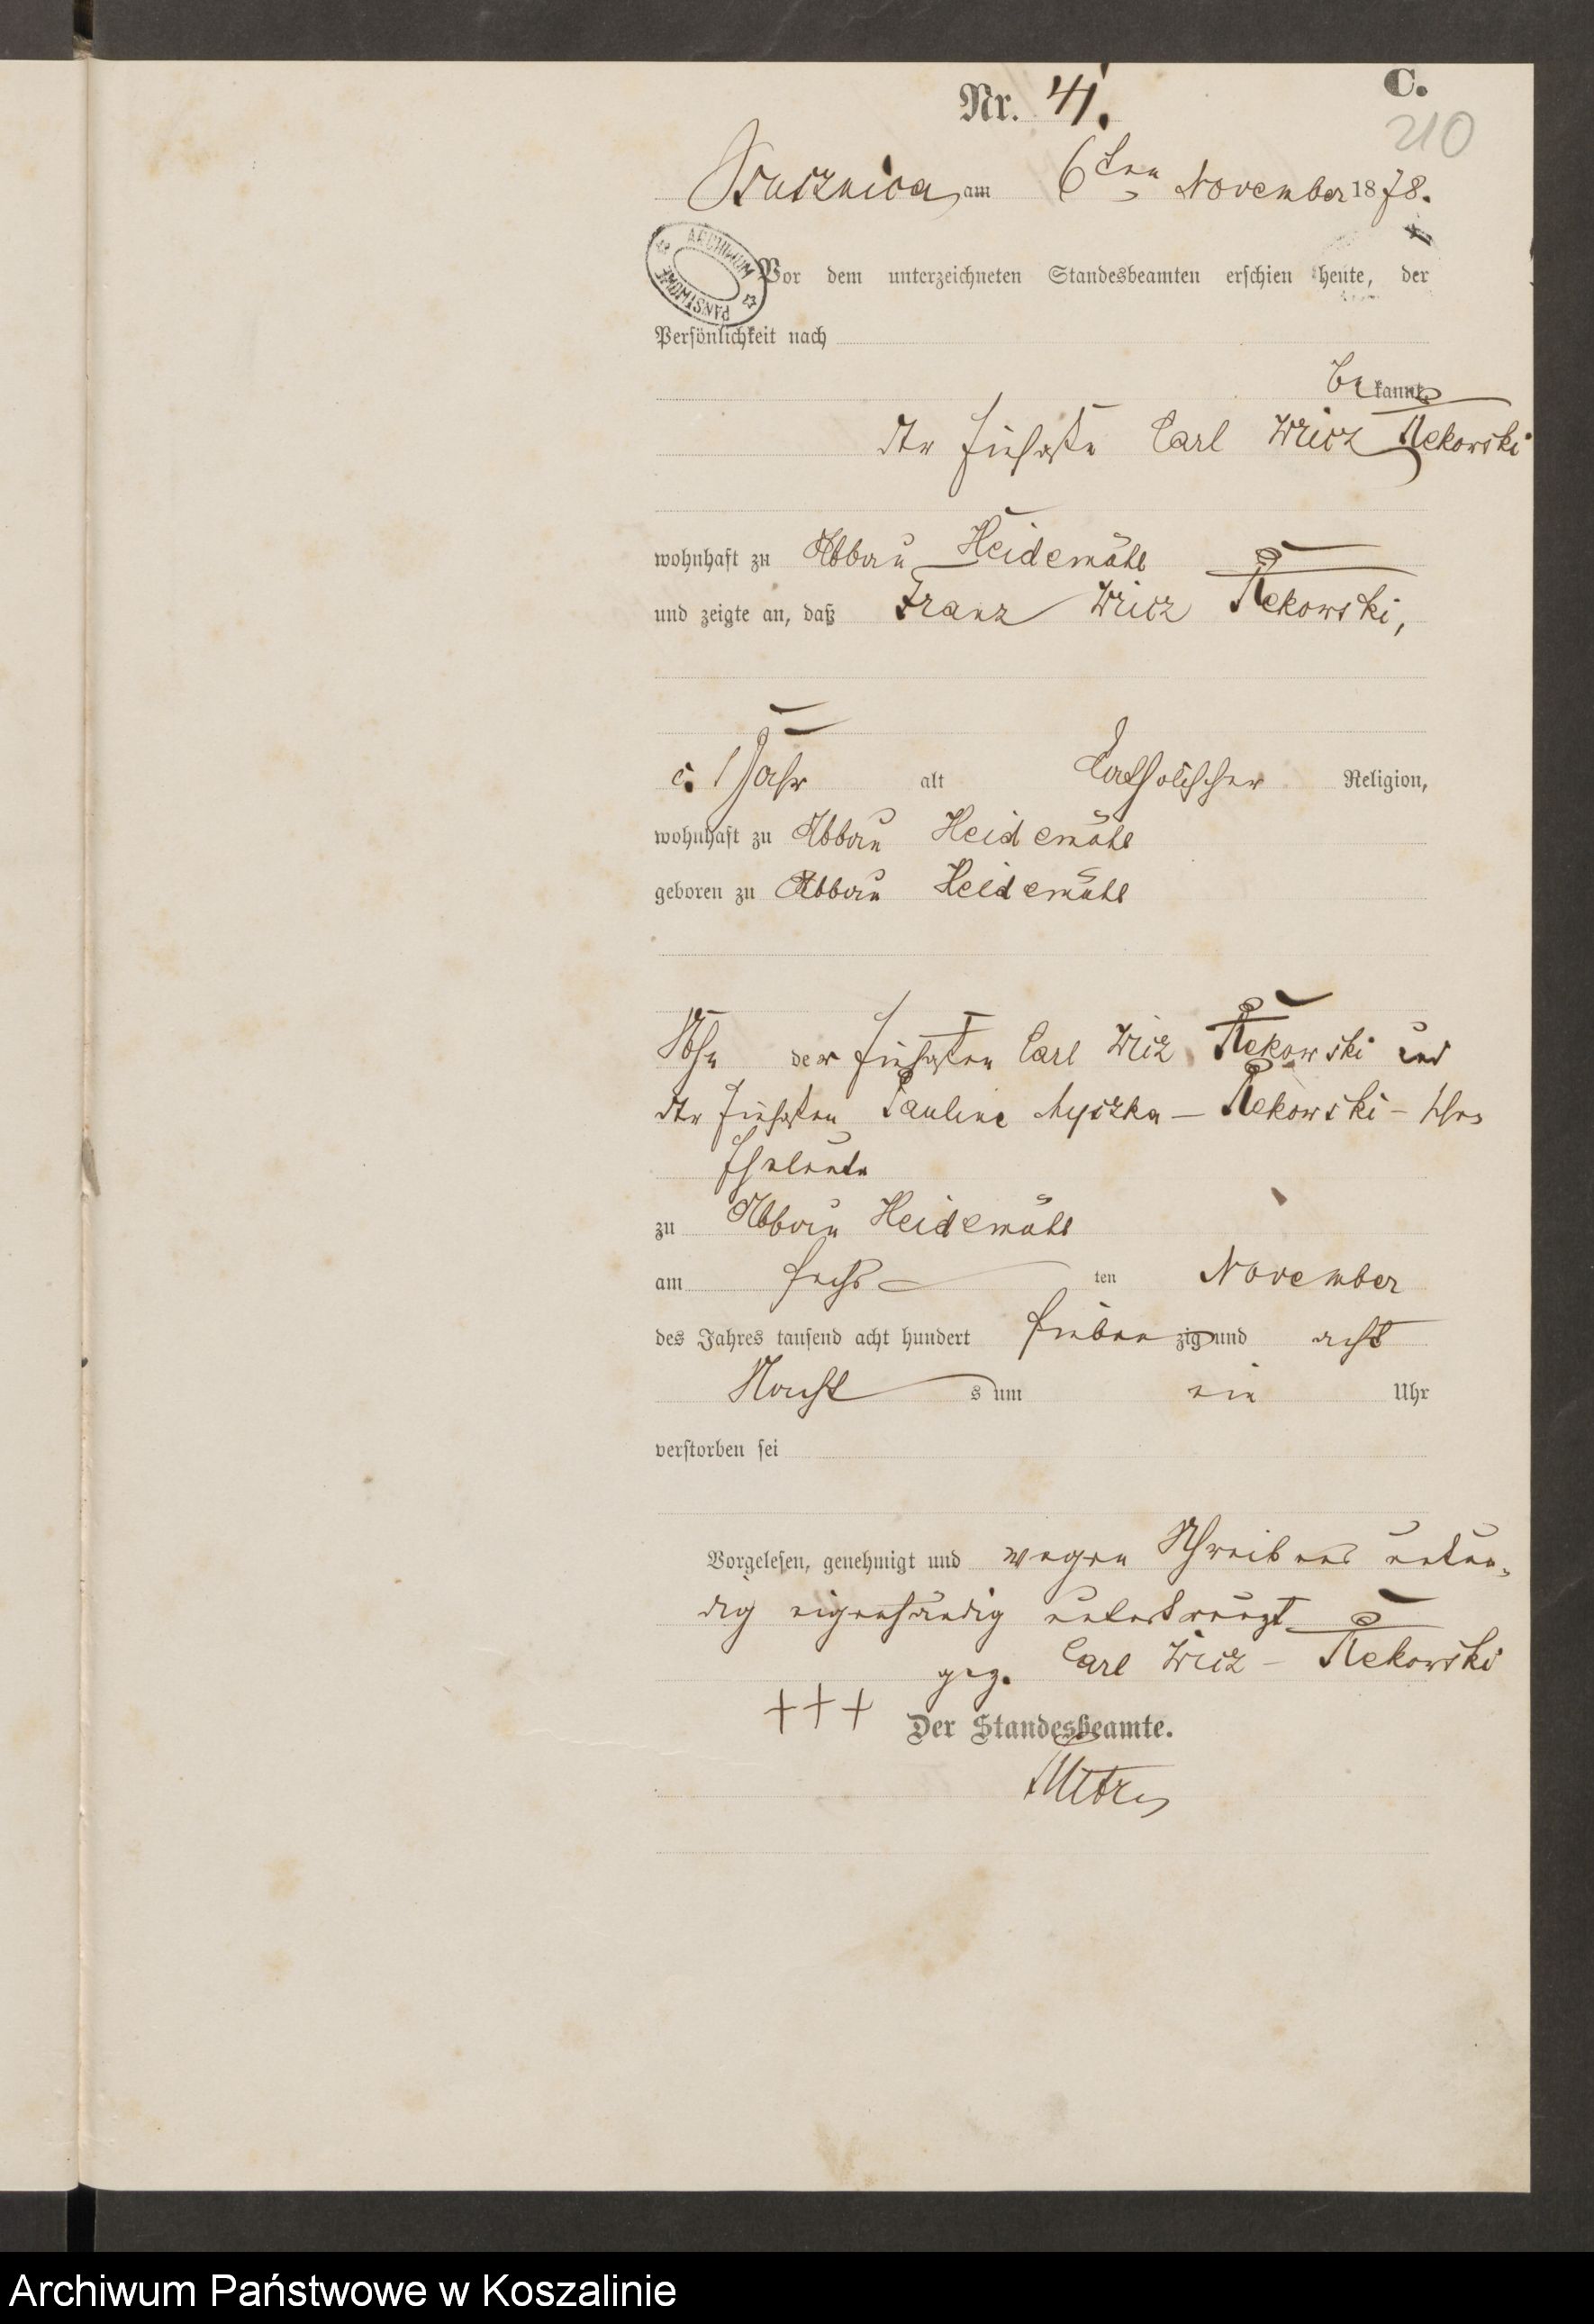 C.
Nr. 41.
210
am 6ten November 1878.
ARCHIWUM PAŃSTWOWE
Vor dem unterzeichneten Standesbeamten erschien heute, der
Persönlichkeit nach
bekannt
der Carl Wricz Rekowski
wohnhaft zu Abbau Heidemühl
und zeigte an, daß Franz Wricz Rekowski,
c. 1 Jahr alt catholischer Religion,
wohnhaft zu Abbau Heidemühl
geboren zu Abbau Heidemühl
Sohn der Carl Wricz Rekowski und
der Pauline Myszka – Rekowski –
Eheleute
zu Abbau Heidemühl
am sechsten November
des Jahres tausend acht hundert siebenzig und acht
Nachts um ein Uhr
verstorben sei
Vorgelesen, genehmigt und wegen Schreibens unkun-
dig eigenhändig unterkreuzt
gez. Carl Wricz – Rekowski
+++ Der Standesbeamte.
Archiwum Państwowe w Koszalinie